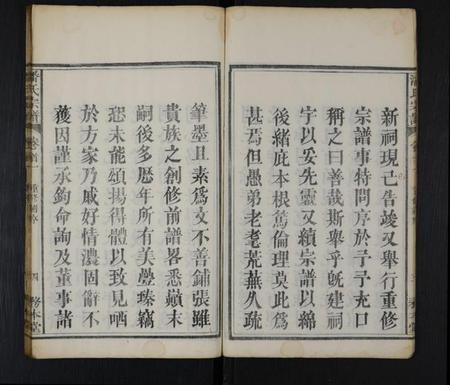 新祠現已告竣又舉行重修
宗譜事特問序於予予充口
稱之曰善哉斯舉乎旣建祠
宇以妥先靈又續宗譜以綿
後緒庇本根篤倫理莫此爲
甚焉但愚弟老耄荒蕪久疏
筆墨且素爲文不善鋪張雖
貴族之創修前譜畧悉巔末
嗣後多歷年所有美璺臻竊
恐未能頌揚得體以致見哂
於方家乃戚好情濃固辭不
獲因謹承鈞命詢及董事諸
潘氏宗譜
卷首一
四
務本堂